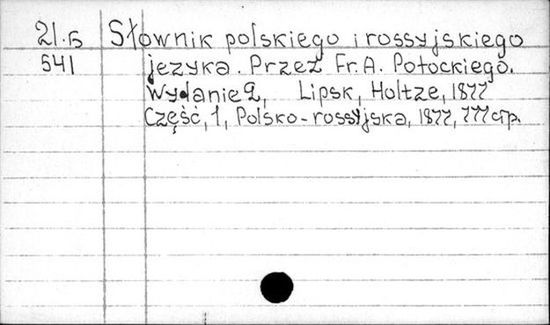 21.Б Słownik polskiego i rossyjskiego
541 języka. Przez Fr. A. Potockiego.
Wydanie 2, Lipsk, Holtze, 1877
Część, 1, Polsko-rossyjska, 1877, 777 стр.